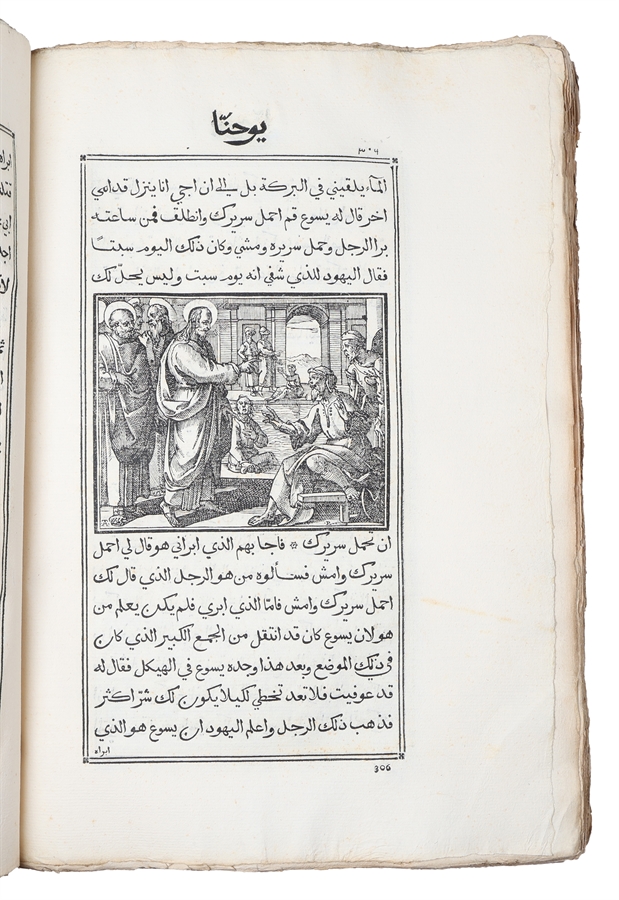 يوحنّا
٣٠٦
المآء يلقيني في البركة بل الي ان اجي انا ينزل قدامي
اخر قال له يسوع قم احمل سريرك وانطلق فمن ساعته
برا الرجل وحمل سريره ومشي وكان ذلك اليوم سبتًا
فقال اليهود للذي شفي انه يوم سبت وليس يحلّ لك
ان تحمل سريرك * فاجابهم الذي ابراني هو قال لي احمل
سريرك وامش فسألوه من هو الرجل الذي قال لك
احمل سريرك وامش فامّا الذي ابري فلم يكن يعلم من
هو لان يسوع كان قد انتقل من الجمع الكبير الذي كان
في ذلك الموضع وبعد هذا وجده يسوع في الهيكل فقال له
قد عوفيت فلا تعد تخطي لكيلا يكون لك شرّ اكثر
فذهب ذلك الرجل واعلم اليهود ان يسوع هو الذي
ابراه
306